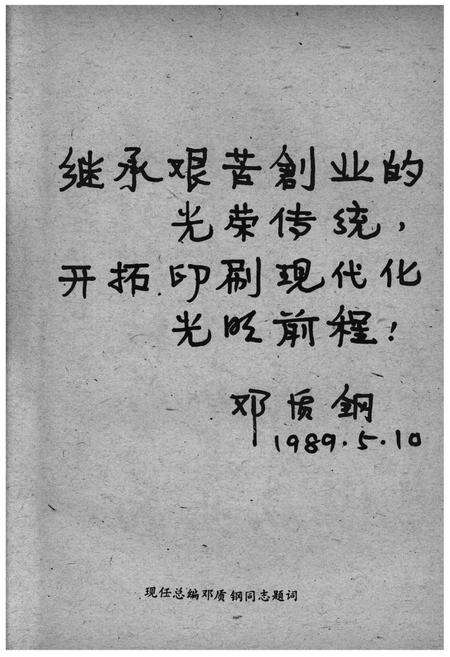 继承艰苦創业的
光荣传统，
开拓印刷现代化
光明前程！
邓质鋼
1989.5.10
现任总编邓质钢同志题词